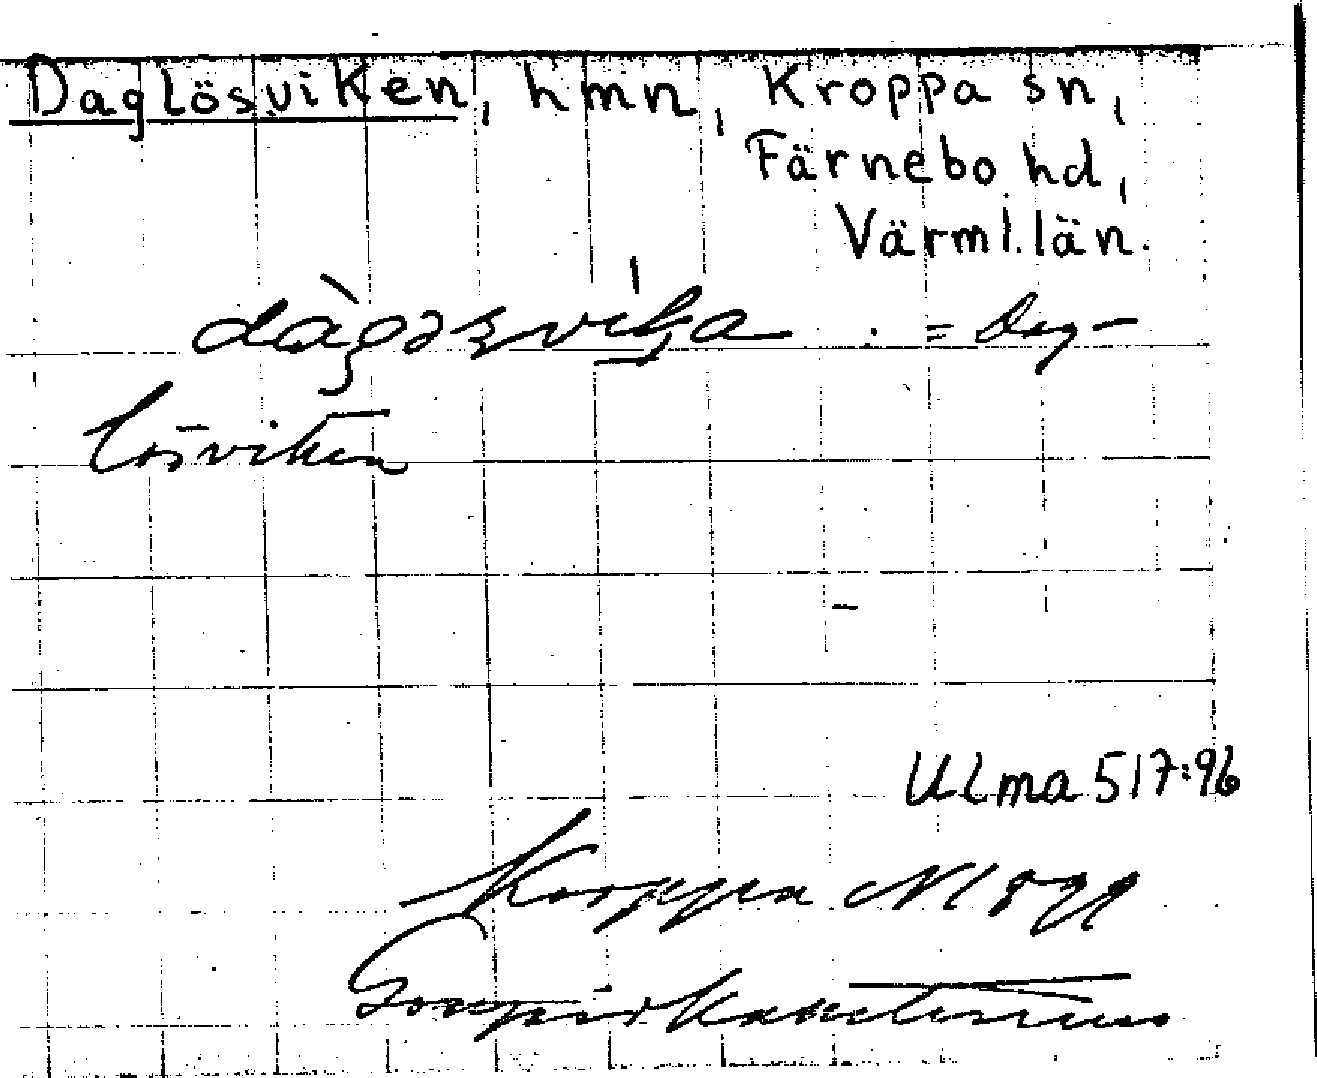 Daglösviken, hmn, Kroppa sn,
Färnebo hd,
Värml. län.
= Dag-
lösviken
Ulma 517:96
Kroppa N 1899